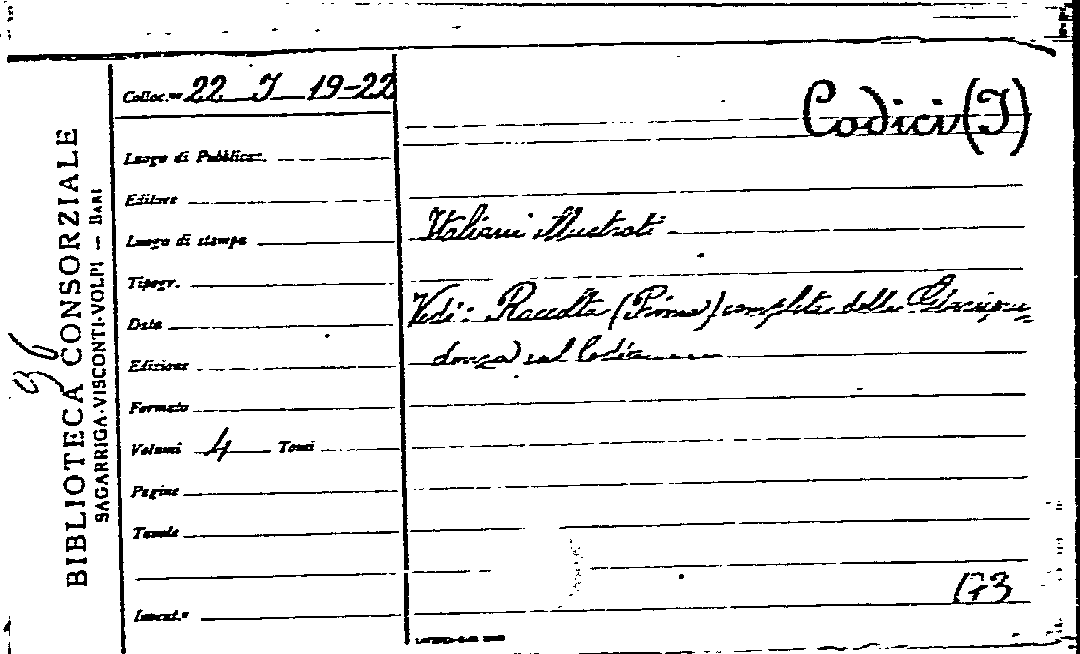 BIBLIOTECA CONSORZIALE
SAGARRIGA-VISCONTI-VOLPI — BARI
96
Colloc.ne 22 I 19-22
Luogo di Pubblicaz.
Editore
Luogo di stampa
Tipogr.
Data
Edizione
Formato
Volumi 4 Tomi
Pagine
Tavole
Invent.°
Codici (I)
Italiani illustrati
Vedi: Raccolta (Prima) completa della Giurispru=
denza sul Codice.....
173